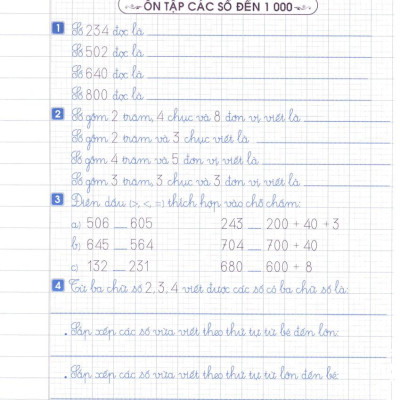 ÔN TẬP CÁC SỐ ĐẾN 1 000
1 Số 234 đọc là
Số 502 đọc là
Số 640 đọc là
Số 800 đọc là
2 Số gồm 2 trăm, 4 chục và 8 đơn vị viết là
Số gồm 2 trăm và 3 chục viết là
Số gồm 4 trăm và 5 đơn vị viết là
Số gồm 3 trăm, 3 chục và 3 đơn vị viết là
3 Điền dấu (>, <, =) thích hợp vào chỗ chấm:
a) 506 __ 605 243 __ 200 + 40 + 3
b) 645 __ 564 704 __ 700 + 40
c) 132 __ 231 680 __ 600 + 8
4 Từ ba chữ số 2, 3, 4 viết được các số có ba chữ số là:
. Sắp xếp các số vừa viết theo thứ tự từ bé đến lớn:
. Sắp xếp các số vừa viết theo thứ tự từ lớn đến bé: